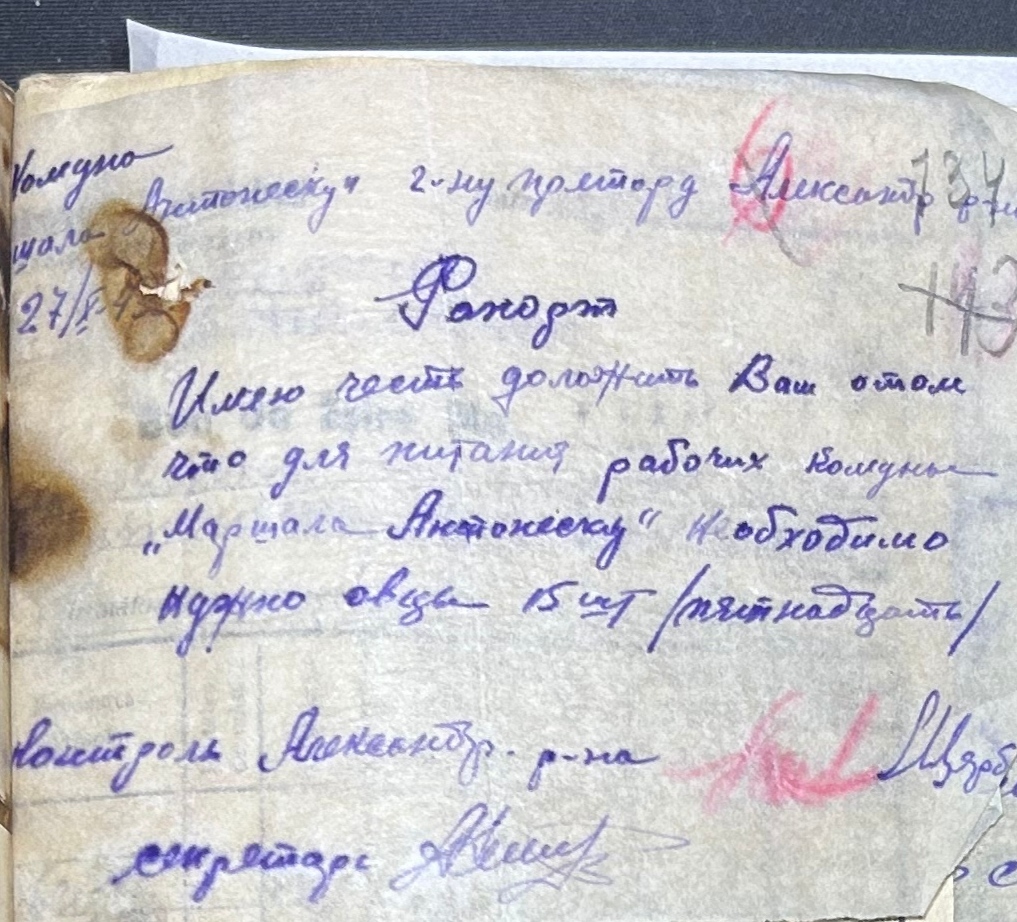 Комуна
Антонеску" г-ну претору Александр р-на
шала
27/
734
Рапорт
143
Имею честь доложить Вам отом
что для питания рабочих комуны
„Маршала Антонеску" необходимо
нужно овцы 15 шт /пятнадцать/
Контроль Александр. р-на
секретарь